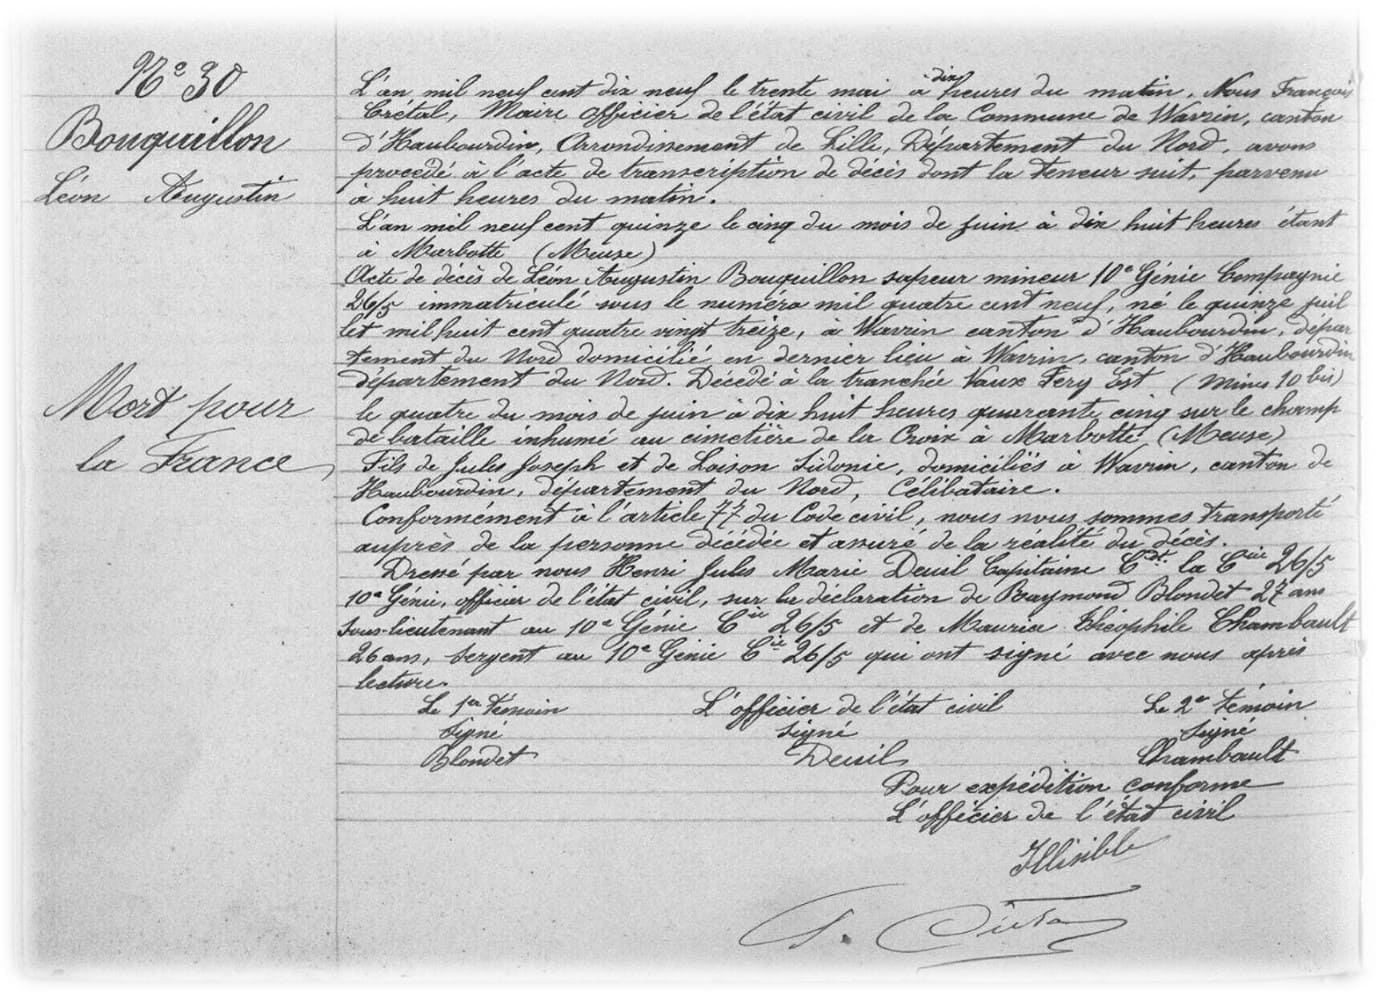 N° 30
Bouquillon
Léon Augustin
Mort pour
la France
L'an mil neuf cent dix neuf le trente mai à dix heures du matin, Nous François
Crétal, Maire officier de l'état civil de la Commune de Wavrin, canton
d'Haubourdin, Arrondissement de Lille, Département du Nord, avons
procédé à l'acte de transcription de décès dont la teneur suit, parvenu
à huit heures du matin.
L'an mil neuf cent quinze le cinq du mois de juin à dix huit heures étant
à Marbotte (Meuse)
Acte de décès de Léon Augustin Bouquillon sapeur mineur 10e Génie Compagnie
26/5 immatriculé sous le numéro mil quatre cent neuf, né le quinze juil
let mil huit cent quatre vingt treize, à Wavrin canton d'Haubourdin, dépar
tement du Nord domicilié en dernier lieu à Wavrin, canton d'Haubourdin
département du Nord. Décédé à la tranchée Vaux Fery Est (mines 10 bis)
le quatre du mois de juin à dix huit heures quarante cinq sur le champ
de bataille inhumé au cimetière de la Croix à Marbotte (Meuse)
Fils de Jules Joseph et de Loison Sidonie, domiciliés à Wavrin, canton de
Haubourdin, département du Nord, Célibataire.
Conformément à l'article 77 du Code civil, nous nous sommes transporté
auprès de la personne décédée et assuré de la réalité du décès.
Dressé par nous Henri Jules Marie Deuil Capitaine Cdt la Cie 26/5
10e Génie, officier de l'état civil, sur la déclaration de Raymond Blondet 27 ans
sous-lieutenant au 10e Génie Cie 26/5 et de Maurice Théophile Chambault
26 ans, Sergent au 10e Génie Cie 26/5 qui ont signé avec nous après
lecture.
Le 1er témoin L'officier de l'état civil Le 2e témoin
signé signé signé
Blondet Deuil Chambault
Pour expédition conforme
L'officier de l'état civil
Illisible